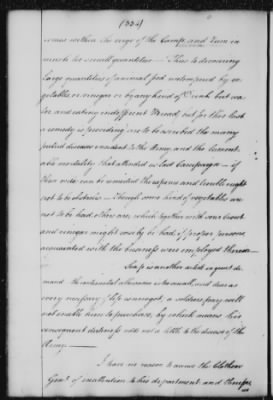 (334)
comes within the verge of the Camp, and Rum in
much too small quantities — Thus to devouring
large quantities of animal food untempered by ve-
getables or vinegar or by any kind of Drink but wa-
ter and eating indifferent Bread, but for this last
a remedy is providing are to be ascribed the many
putrid diseases incident to the Army and the lament-
able mortality that attended us last Campaign — if
these evils can be remedied the expense and trouble ought
not to be obstacles — Though some kind of vegetables are
not to be had others are, which together with sour Crout
and vinegar might easily be had, if proper persons,
acquainted with the business were employed therein
Soap is another article in great de-
mand the continental allowance is too small, and dear as
every necessary of life is now got, a soldiers pay will
not enable him to purchase, by which means his
consequent dirtiness adds not a little to the disease of the
Army —
I have no reason to accuse the Clothier
Genl of inattention to his department and therefore